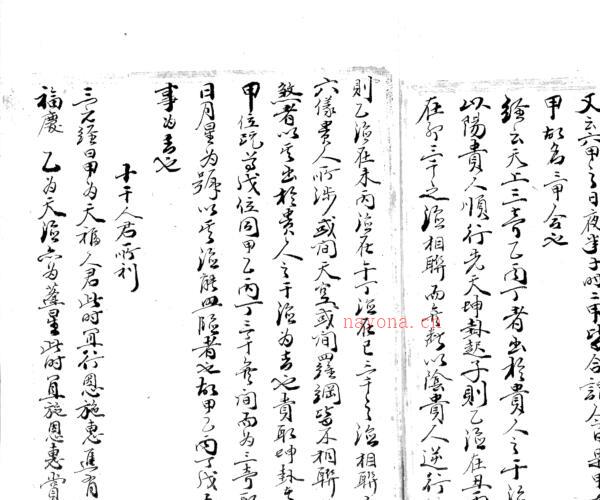 又云六甲之日夜半子時二甲皆合
甲故名三甲合也
經云天上三奇乙丙丁者出於貴人之干
以陽貴人順行先天坤卦起子則乙德在丑
在卯三干之德相聯而無
以陰貴人逆行
則乙德在未丙德在午丁德在巳三干之德相聯
六儀貴人所涉或間天空或間羅網皆不相聯
者以其出於貴人之干德為吉也貴取坤卦
甲位戊位同甲乙丙丁三干無間而為三奇
日月星為號以其德能照臨者也故甲乙丙丁戊
事為吉也
十干人君所利
三元經曰甲為天福人君此時宜行恩施惠進有
福慶 乙為天德亦為蓬星此時宜施恩惠賞
nayona.cn